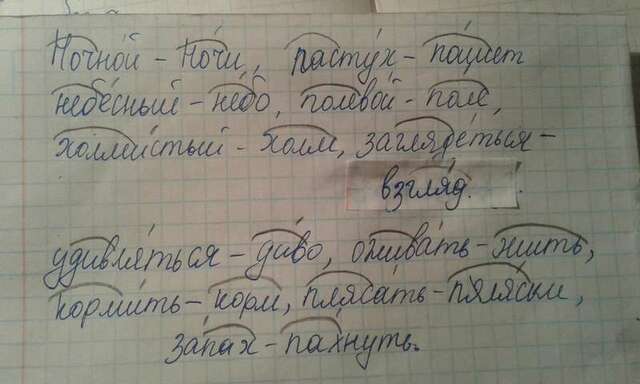 Ночной - Ночи, Пастух - пасёт
небесный - небо, полевой - поле,
холмистый - холм, заглядеться -
взгляд.
удивляться - диво, оживать - жить,
кормить - корм, плясать - пляски,
запах - пахнуть.